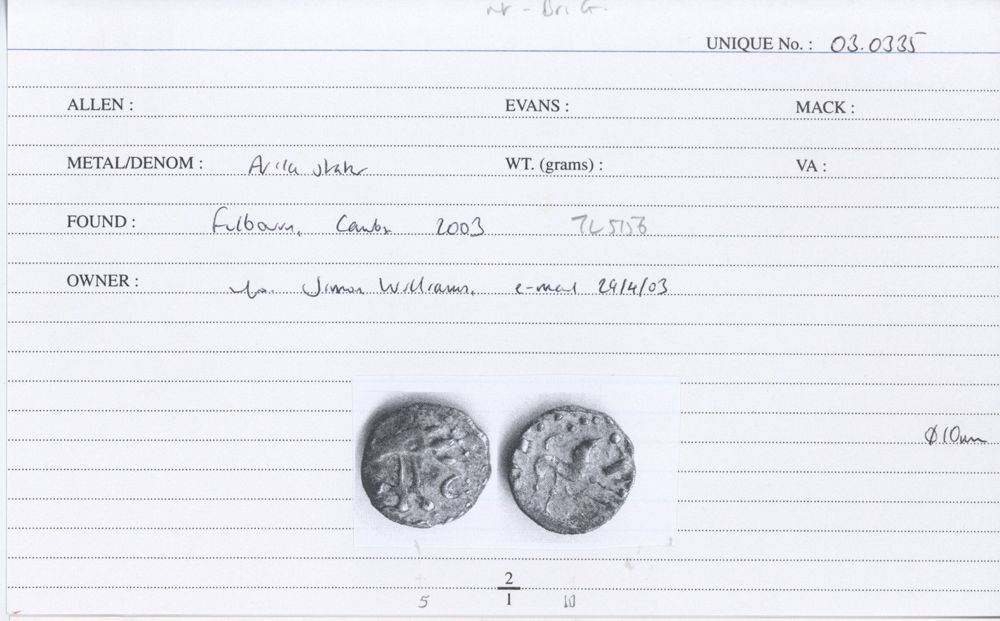 UNIQUE No. : 03.0335
ALLEN : EVANS : MACK :
METAL/DENOM : WT. (grams) : VA :
FOUND : Fulbourn, Cambs 2003 TL5156
OWNER : Simon Williams, e-mail 29/4/03
Ø10mm
2
5 1 10